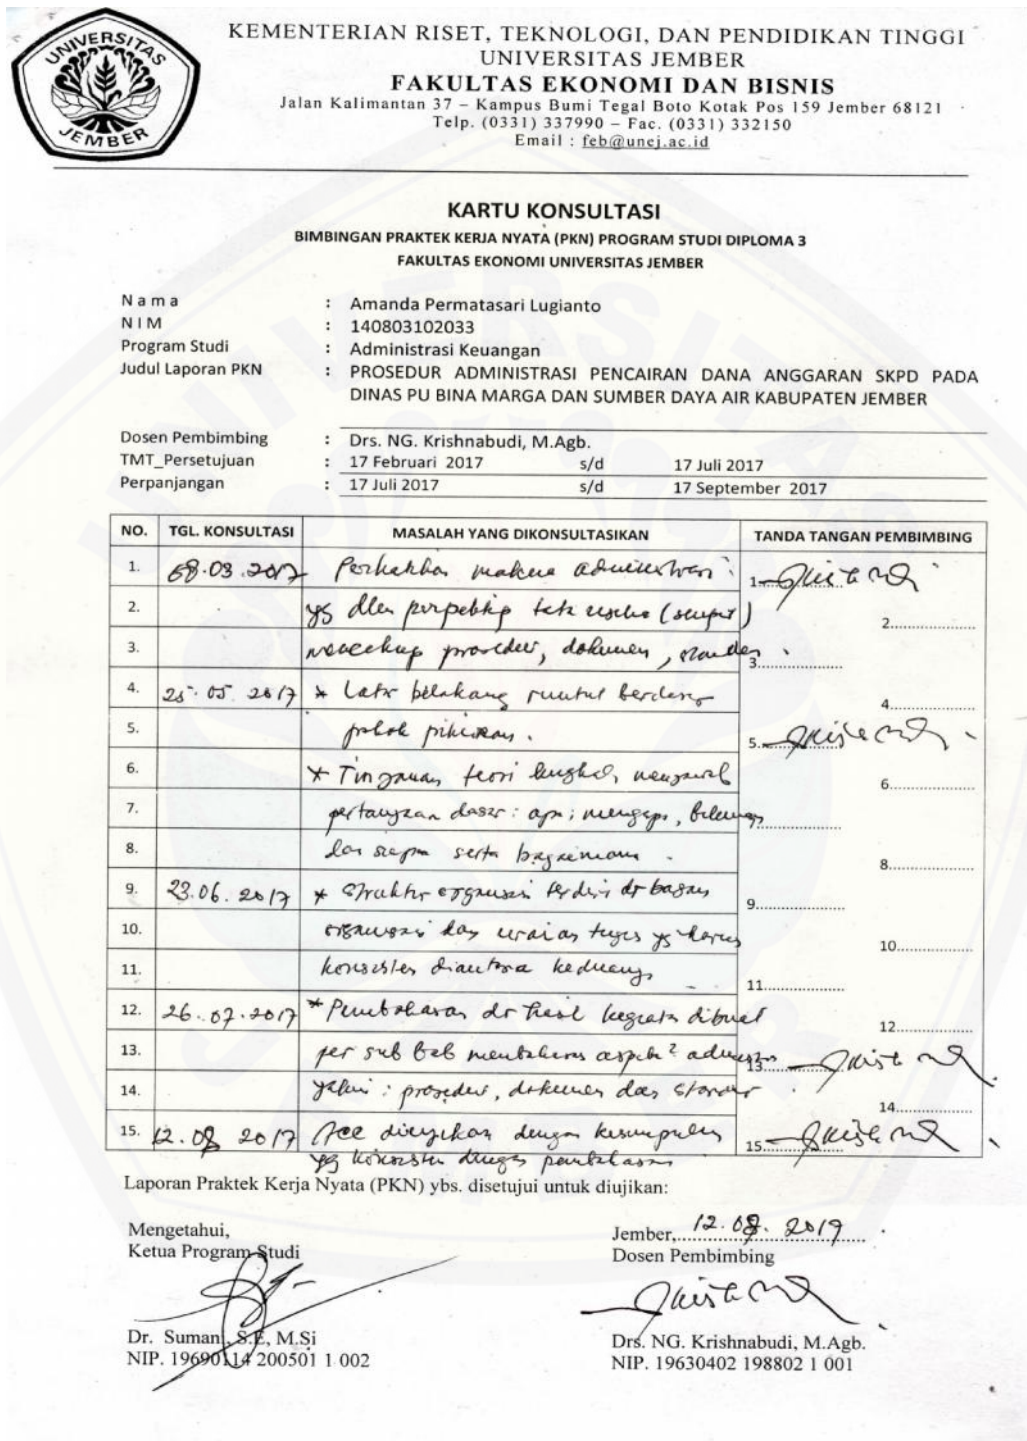 UNIVERSITAS
JEMBER
KEMENTERIAN RISET, TEKNOLOGI, DAN PENDIDIKAN TINGGI
UNIVERSITAS JEMBER
FAKULTAS EKONOMI DAN BISNIS
Jalan Kalimantan 37 – Kampus Bumi Tegal Boto Kotak Pos 159 Jember 68121
Telp. (0331) 337990 – Fac. (0331) 332150
Email : feb@unej.ac.id
KARTU KONSULTASI
BIMBINGAN PRAKTEK KERJA NYATA (PKN) PROGRAM STUDI DIPLOMA 3
FAKULTAS EKONOMI UNIVERSITAS JEMBER
Nama : Amanda Permatasari Lugianto
NIM : 140803102033
Program Studi : Administrasi Keuangan
Judul Laporan PKN : PROSEDUR ADMINISTRASI PENCAIRAN DANA ANGGARAN SKPD PADA
DINAS PU BINA MARGA DAN SUMBER DAYA AIR KABUPATEN JEMBER
Dosen Pembimbing : Drs. NG. Krishnabudi, M.Agb.
TMT_Persetujuan : 17 Februari 2017 s/d 17 Juli 2017
Perpanjangan : 17 Juli 2017 s/d 17 September 2017
NO. TGL. KONSULTASI MASALAH YANG DIKONSULTASIKAN TANDA TANGAN PEMBIMBING
1. 08.03.2017 makna administrasi 1
2. yg dlm tata usaha (sempit) 2
3. mencakup prosedur, dokumen, 3
4. 25.05.2017 * Latar belakang runtut 4
5. pokok pikiran. 5.
6. * Tinjauan teori 6
7. pertanyaan dasar: apa; mengapa, 7
8. dan siapa serta bagaimana. 8
9. 23.06.2017 * Struktur organisasi terdiri dr bagan 9
10. organisasi dan uraian tugas yg harus 10
11. konsisten diantara keduanya 11
12. 26.07.2017 * Pembahasan dr hasil kegiatan dibuat 12
13. per sub bab aspek² 13
14. yakni: prosedur, dokumen dan standar 14
15. 12.08 2017 Acc diujikan dengan kesimpulan 15
yg konsisten dengan pembahasan
Laporan Praktek Kerja Nyata (PKN) ybs. disetujui untuk diujikan:
Mengetahui,
Ketua Program Studi
Jember, 12.08. 2017
Dosen Pembimbing
Dr. Sumani, S.E, M.Si
NIP. 19690114 200501 1 002
Drs. NG. Krishnabudi, M.Agb.
NIP. 19630402 198802 1 001